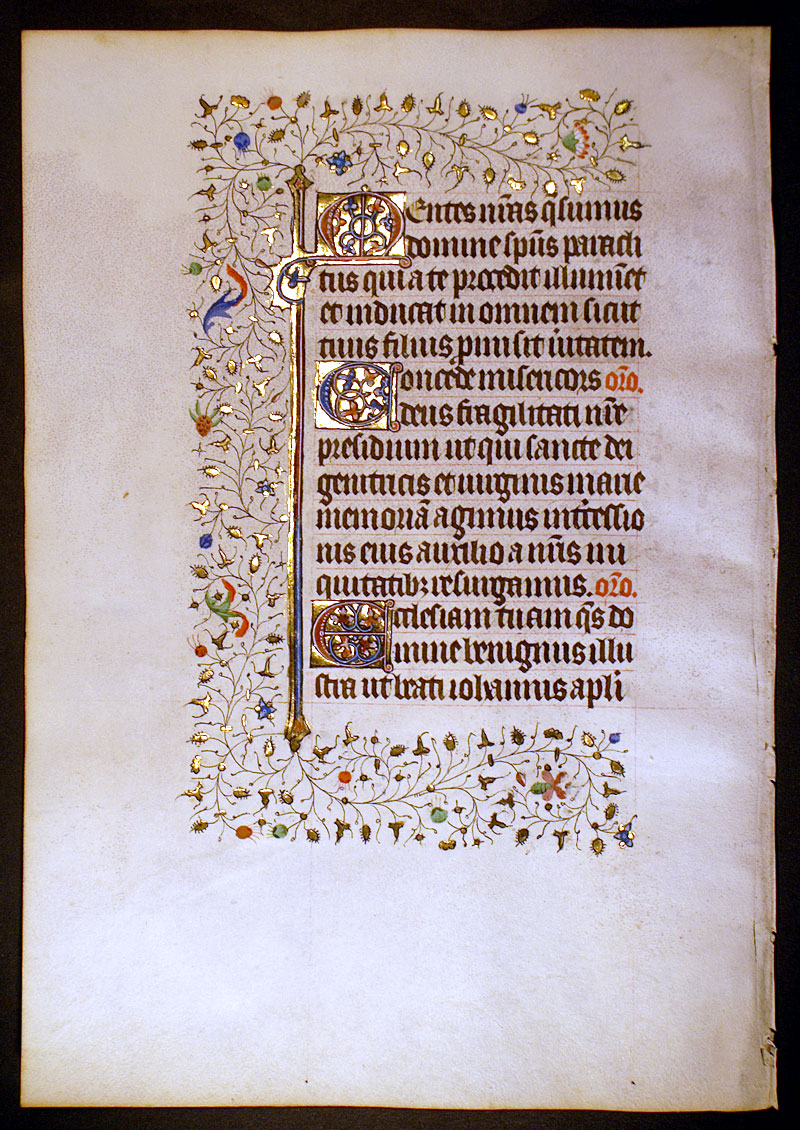 Mentes nr̃as q̃sumus
domine sp̃us paracli
tus qui a te procedit illumi̾et
et inducat in omnem sicut
tuus filius p̱misit ũitatem.
Concede misericors oro̾.
deus fragilitati nr̃e
presidium ut qui sancte dei
genitricis et uirginis marie
memoriã agimus int̾cessio
nis eius auxilio a nr̃is ini
quitatibꝫ resurgamus. oro̾.
Ecclesiam tuam q̃s do
mine benignus illu
stra ut beati iohannis apl̃i